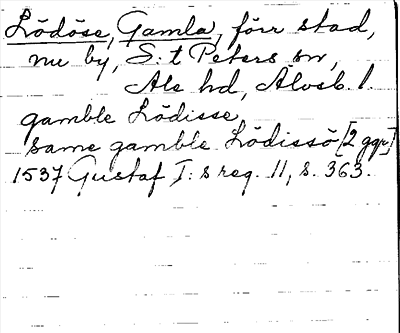 Lödöse, Gamla, förr stad,
nu by, S:t Peters sn,
Ale hd, Älvsb. l.
gamble Lödisse
samme gamble Lödissö [2 ggr]
1537 Gustaf I:s reg. 11, s. 363.